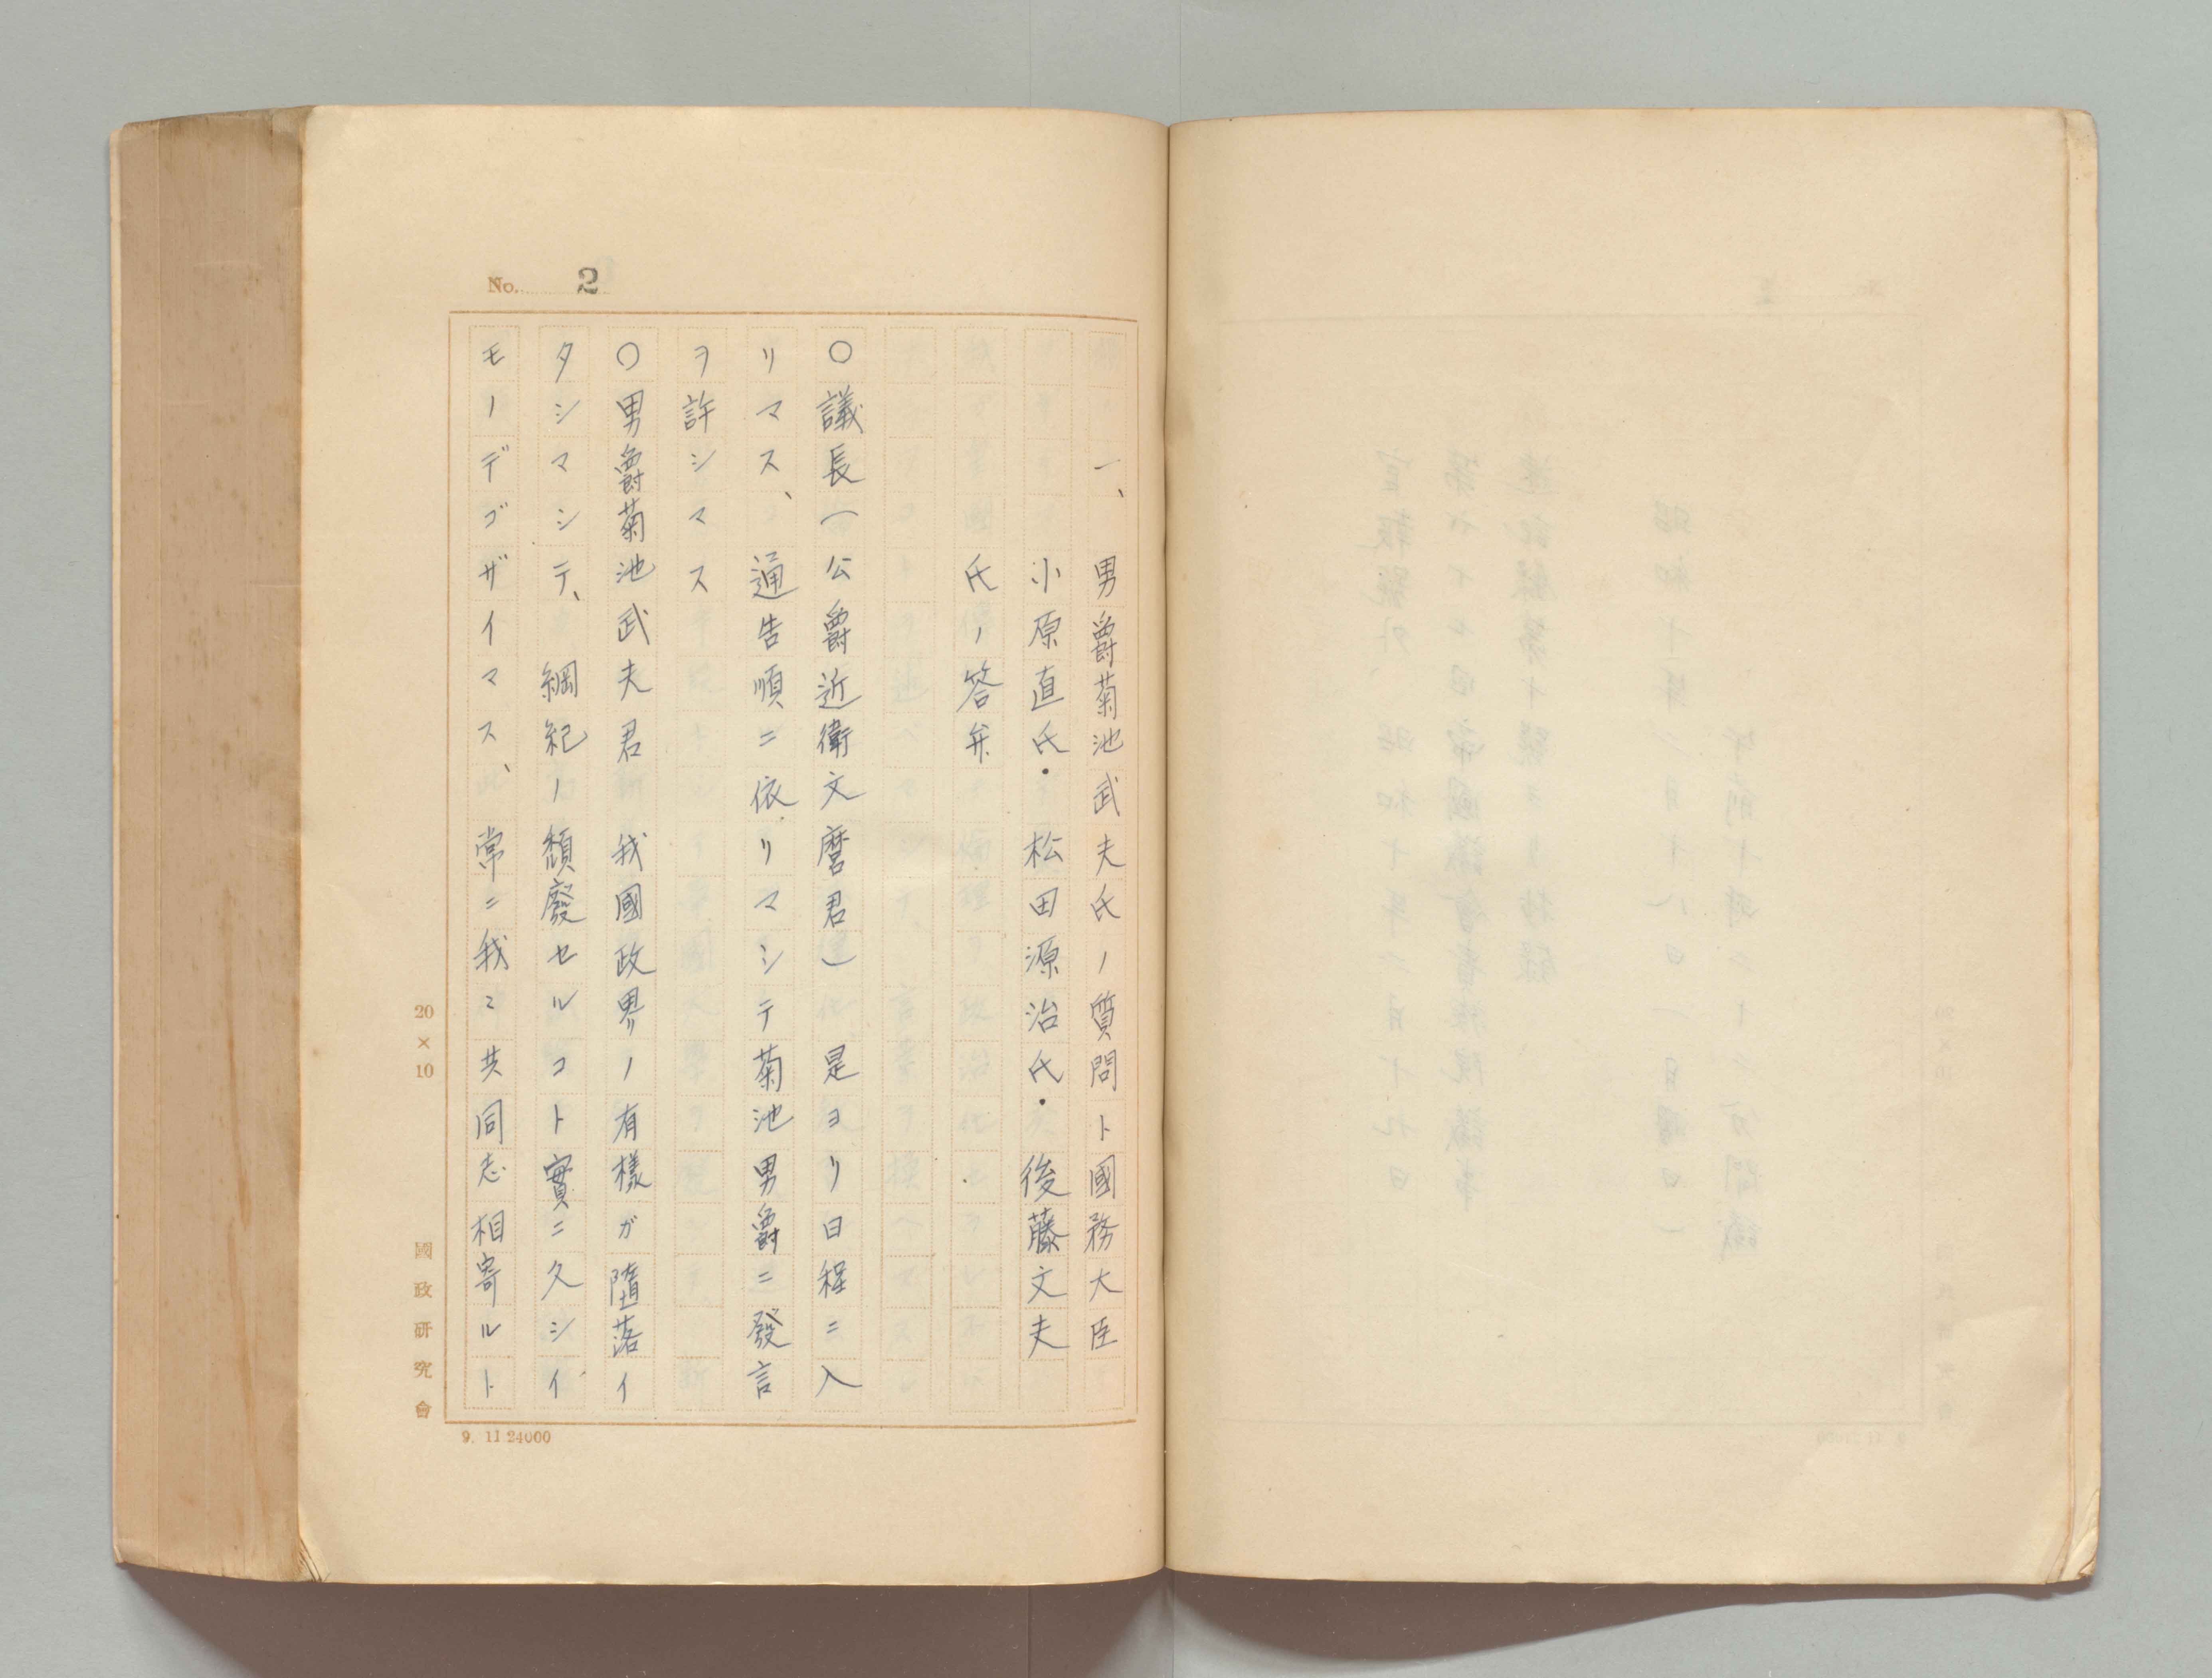 No. 2
一、男爵菊池武夫氏ノ質問ト國務大臣
小原直氏・松田源治氏・後藤文夫
氏ノ答弁
〇議長(公爵近衛文麿君) 是ヨリ日程ニ入
リマス、通告順ニ依リマシテ菊池男爵ニ發言
ヲ許シマス
〇男爵菊池武夫君 我國政界ノ有樣ガ墮落イ
タシマシテ、綱紀ノ頽廢セルコト實ニ久シイ
モノデゴザイマス、常ニ我々共同志相寄ルト
20×10
國政研究會
9. 11 24000